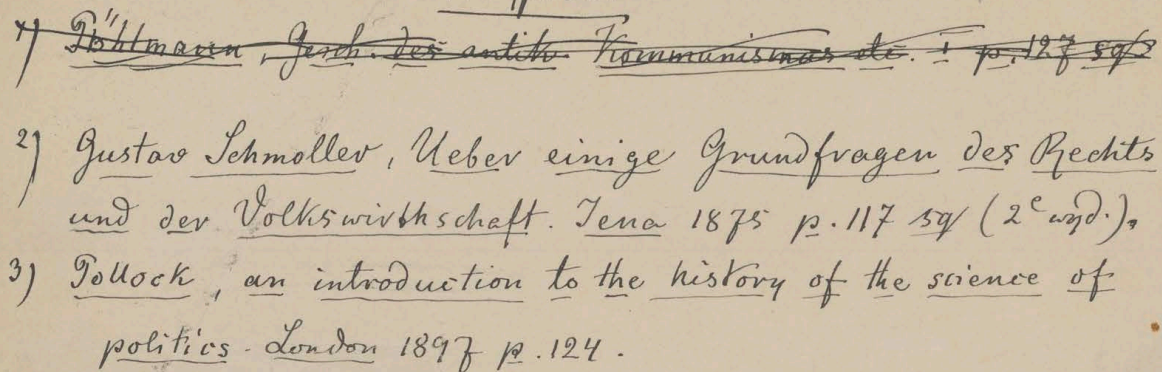 1) Pöhlmann, Gesch. des antik Kommunismus etc. I p. 127 sq
2) Gustav Schmoller, Ueber einige Grundfragen des Rechts
und der Volkswirthschaft. Jena 1875 p. 117 sq (2e wyd.).
3) Pollock, an introduction to the history of the science of
politics - London 1897 p. 124.